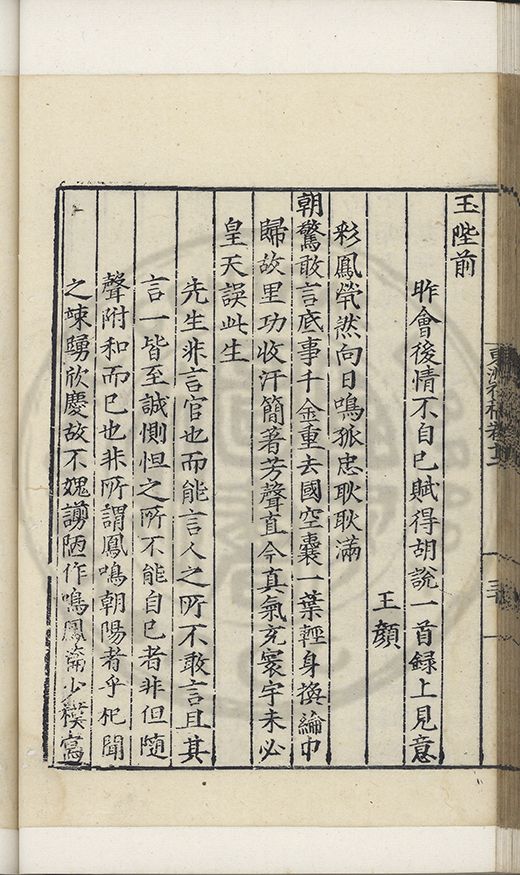 玉陛前
昨會後情不自已賦得胡說一首録上見意
王顏
彩鳳煢然向日鳴孤忠耿耿滿
朝驚敢言底事千金重去國空囊一葉輕身換論中
歸故里功收汗簡著芳聲直令真氣充寰宇未必
皇天誤此生
先生非言官也而能言人之所不敢言且其
言一皆至誠惻怛之所不能自已者非但隨
聲附和而已也非所謂鳳鳴朝陽者乎杞聞
之竦踴欣慶故不媿謭陋作鳴鳳瀹少樸寫